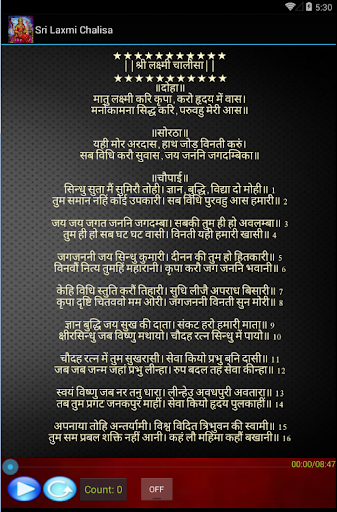 5:30
Sri Laxmi Chalisa
★★★★★★★★★★★
||श्री लक्ष्मी चालीसा||
★★★★★★★★★★★
॥दोहा॥
मातु लक्ष्मी करि कृपा, करो हृदय में वास।
मनोकामना सिद्ध करि, परुवहु मेरी आस॥
॥सोरठा॥
यही मोर अरदास, हाथ जोड़ विनती करुं।
सब विधि करौ सुवास, जय जननि जगदम्बिका॥
॥चौपाई॥
सिन्धु सुता मैं सुमिरौ तोही। ज्ञान, बुद्धि, विद्या दो मोही॥ 1
तुम समान नहिं कोई उपकारी। सब विधि पुरवहु आस हमारी॥ 2
जय जय जगत जननि जगदम्बा। सबकी तुम ही हो अवलम्बा॥ 3
तुम ही हो सब घट घट वासी। विनती यही हमारी खासी॥ 4
जगजननी जय सिन्धु कुमारी। दीनन की तुम हो हितकारी॥ 5
विनवौं नित्य तुमहिं महारानी। कृपा करौ जग जननि भवानी॥ 6
केहि विधि स्तुति करौं तिहारी। सुधि लीजै अपराध बिसारी॥ 7
कृपा दृष्टि चितववो मम ओरी। जगजननी विनती सुन मोरी॥ 8
ज्ञान बुद्धि जय सुख की दाता। संकट हरो हमारी माता॥ 9
क्षीरसिन्धु जब विष्णु मथायो। चौदह रत्न सिन्धु में पायो॥ 10
चौदह रत्न में तुम सुखरासी। सेवा कियो प्रभु बनि दासी॥ 11
जब जब जन्म जहां प्रभु लीन्हा। रुप बदल तहं सेवा कीन्हा॥ 12
स्वयं विष्णु जब नर तनु धारा। लीन्हेउ अवधपुरी अवतारा॥ 13
तब तुम प्रगट जनकपुर माहीं। सेवा कियो हृदय पुलकाहीं॥ 14
अपनाया तोहि अन्तर्यामी। विश्व विदित त्रिभुवन की स्वामी॥ 15
तुम सम प्रबल शक्ति नहीं आनी। कहं लौ महिमा कहौं बखानी॥ 16
00:00/08:47
Count: 0
OFF